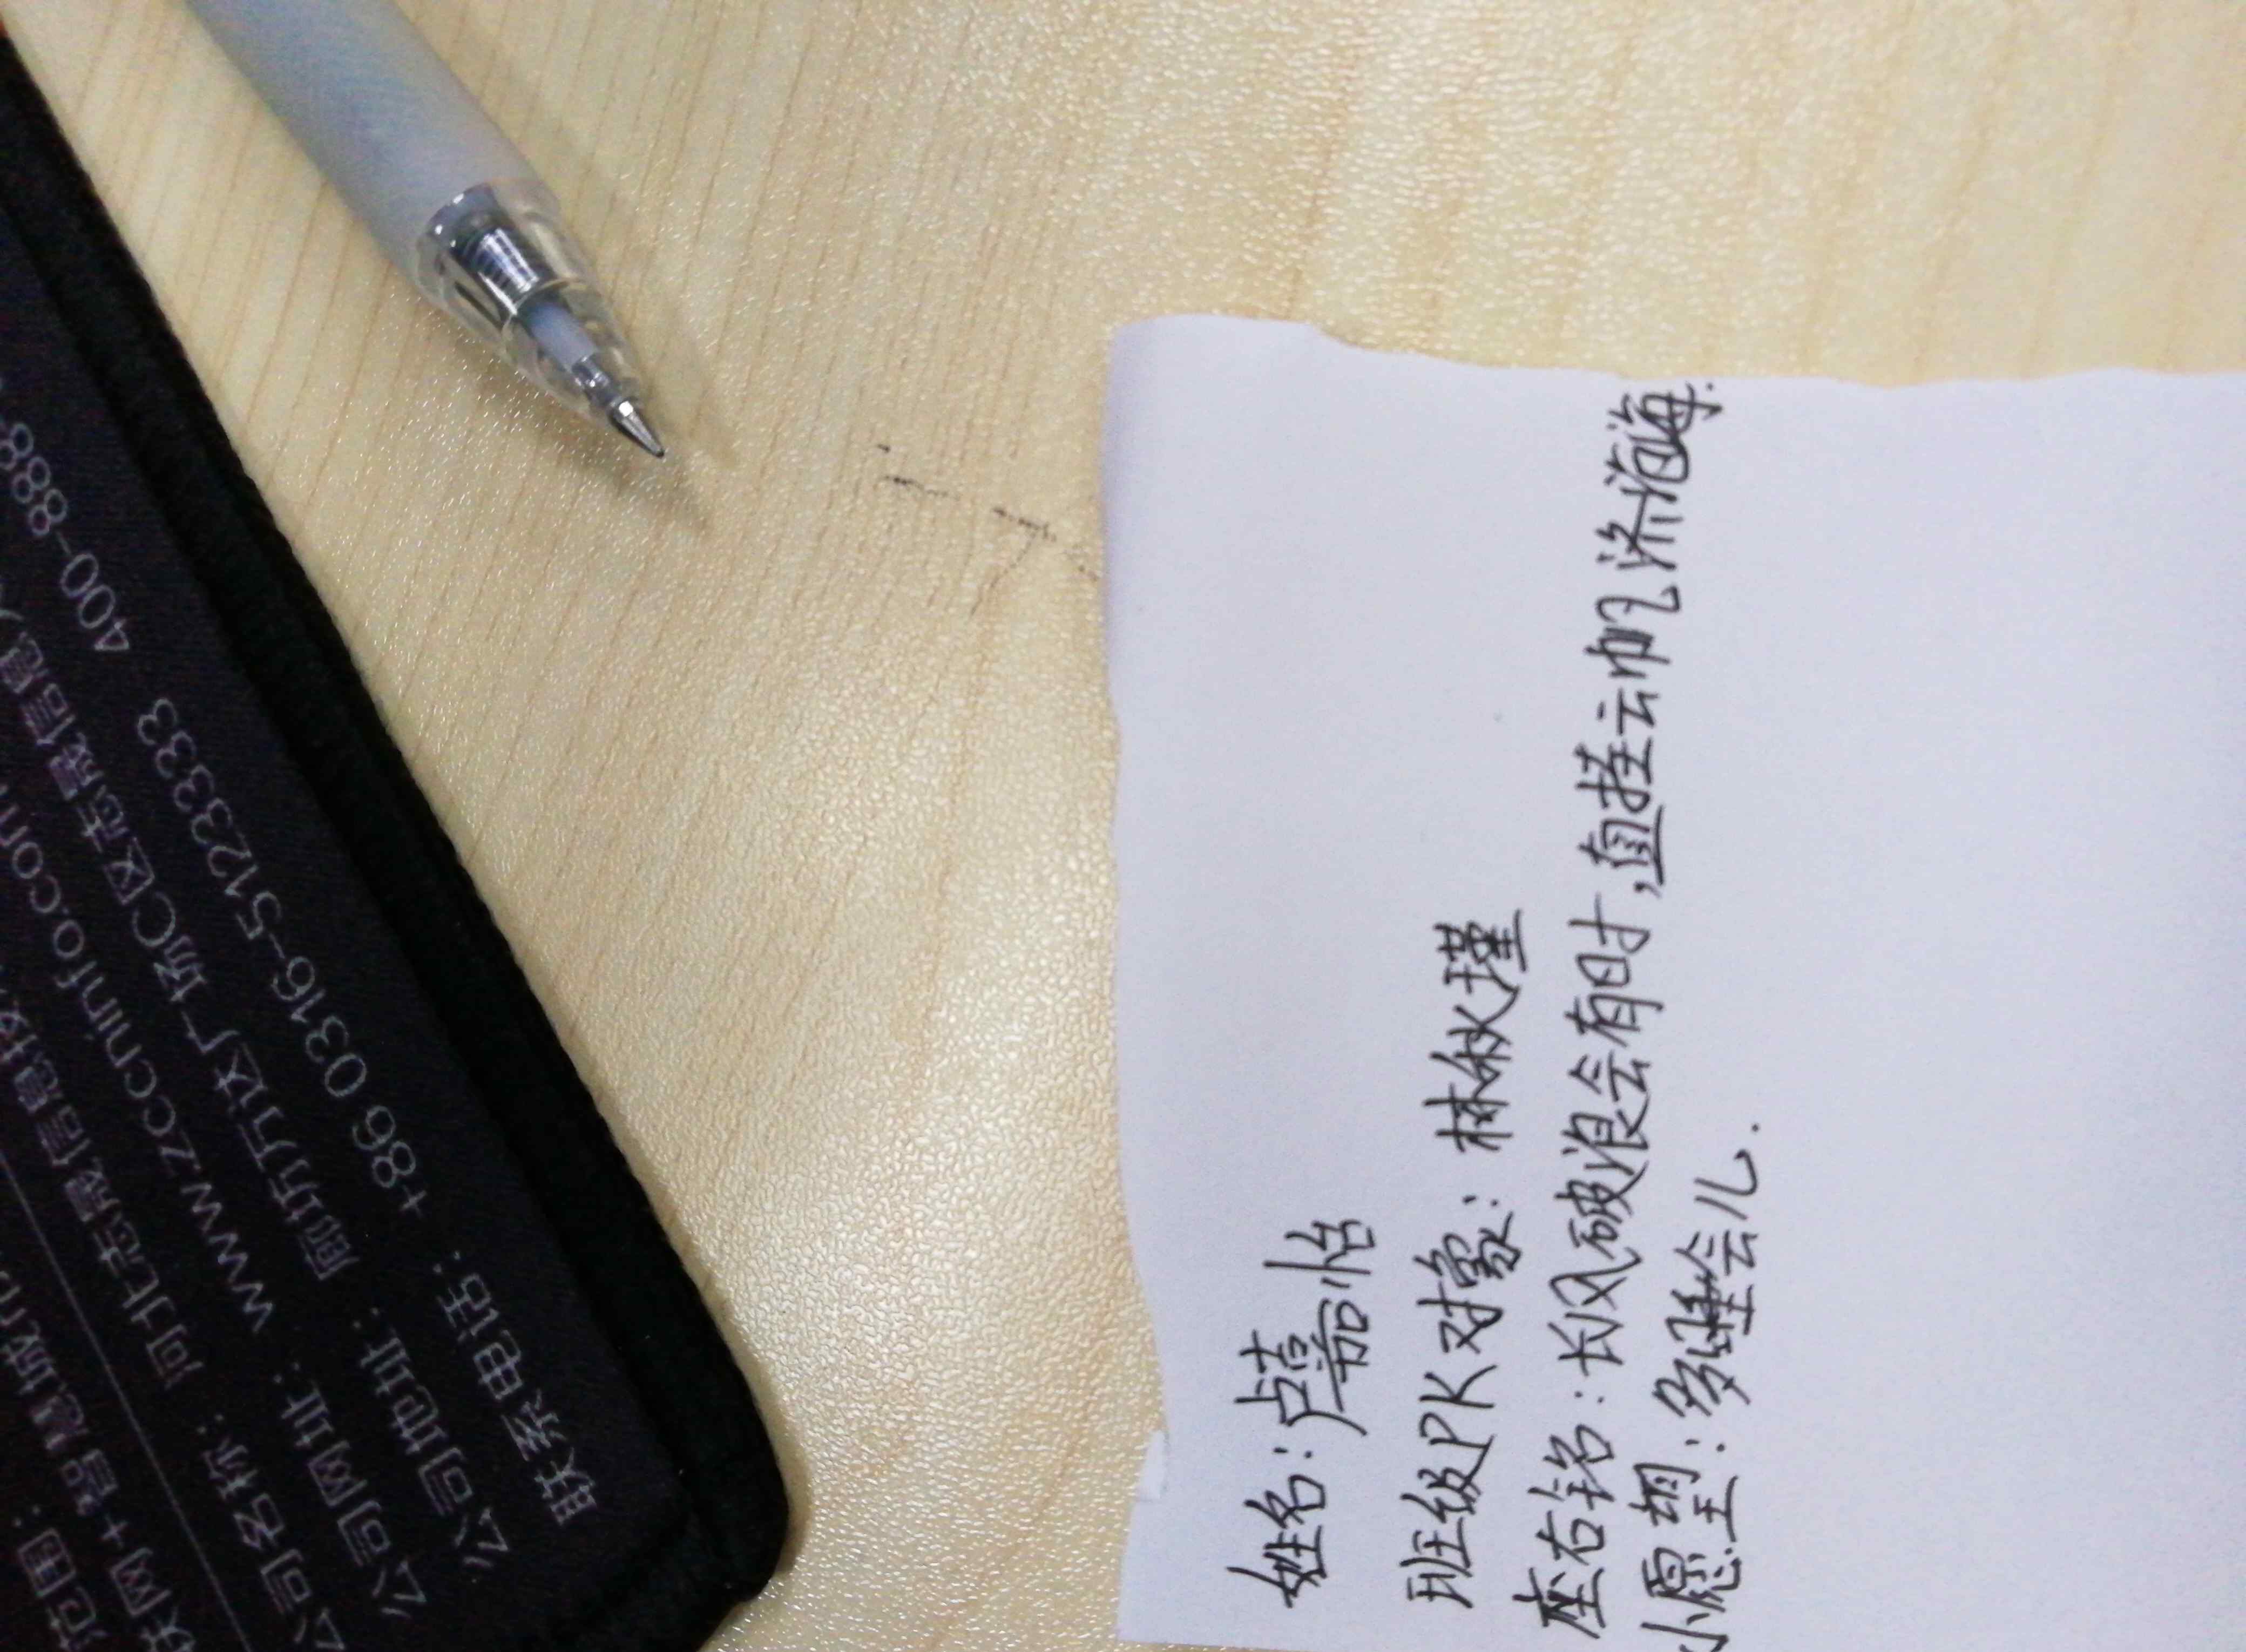 姓名：卢嘉怡
班级PK对象：林秋瑾
座右铭：长风破浪会有时，直挂云帆济沧海.
小愿望：多睡会儿.
范围：
联网+智慧城市
公司名称：河北志晟信息技
公司网址：www.zccninfo.com
公司地址：廊坊万达广场C区志晟信息大
联系电话：+86 0316-5123333 400-888-